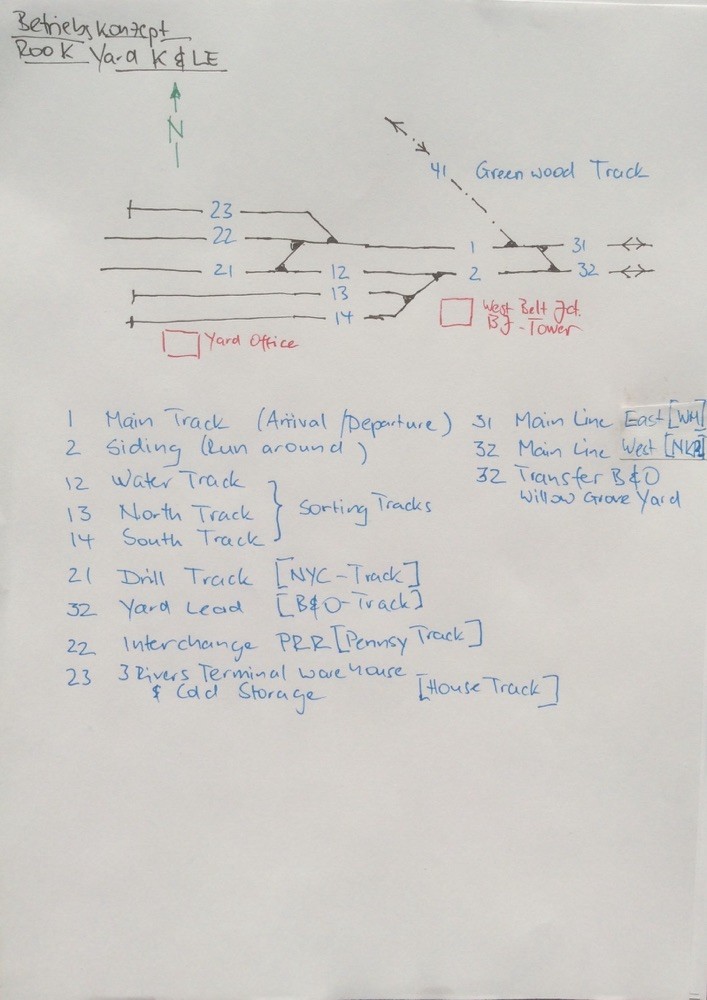 Betriebskonzept
Rook Yard K & LE
N
41 Greenwood Track
23
22 1 31
21 12 2 32
13
14
West Belt Jct.
BJ - Tower
Yard Office
1 Main Track (Arrival/Departure)
2 Siding (Run around)
12 Water Track
13 North Track } Sorting Tracks
14 South Track
21 Drill Track [NYC-Track]
32 Yard Lead [B&O-Track]
22 Interchange PRR [Pennsy Track]
23 3 Rivers Terminal warehouse
& Cold Storage [House Track]
31 Main Line East [WM]
32 Main Line West [NKP]
32 Transfer B&O
Willow Grove Yard